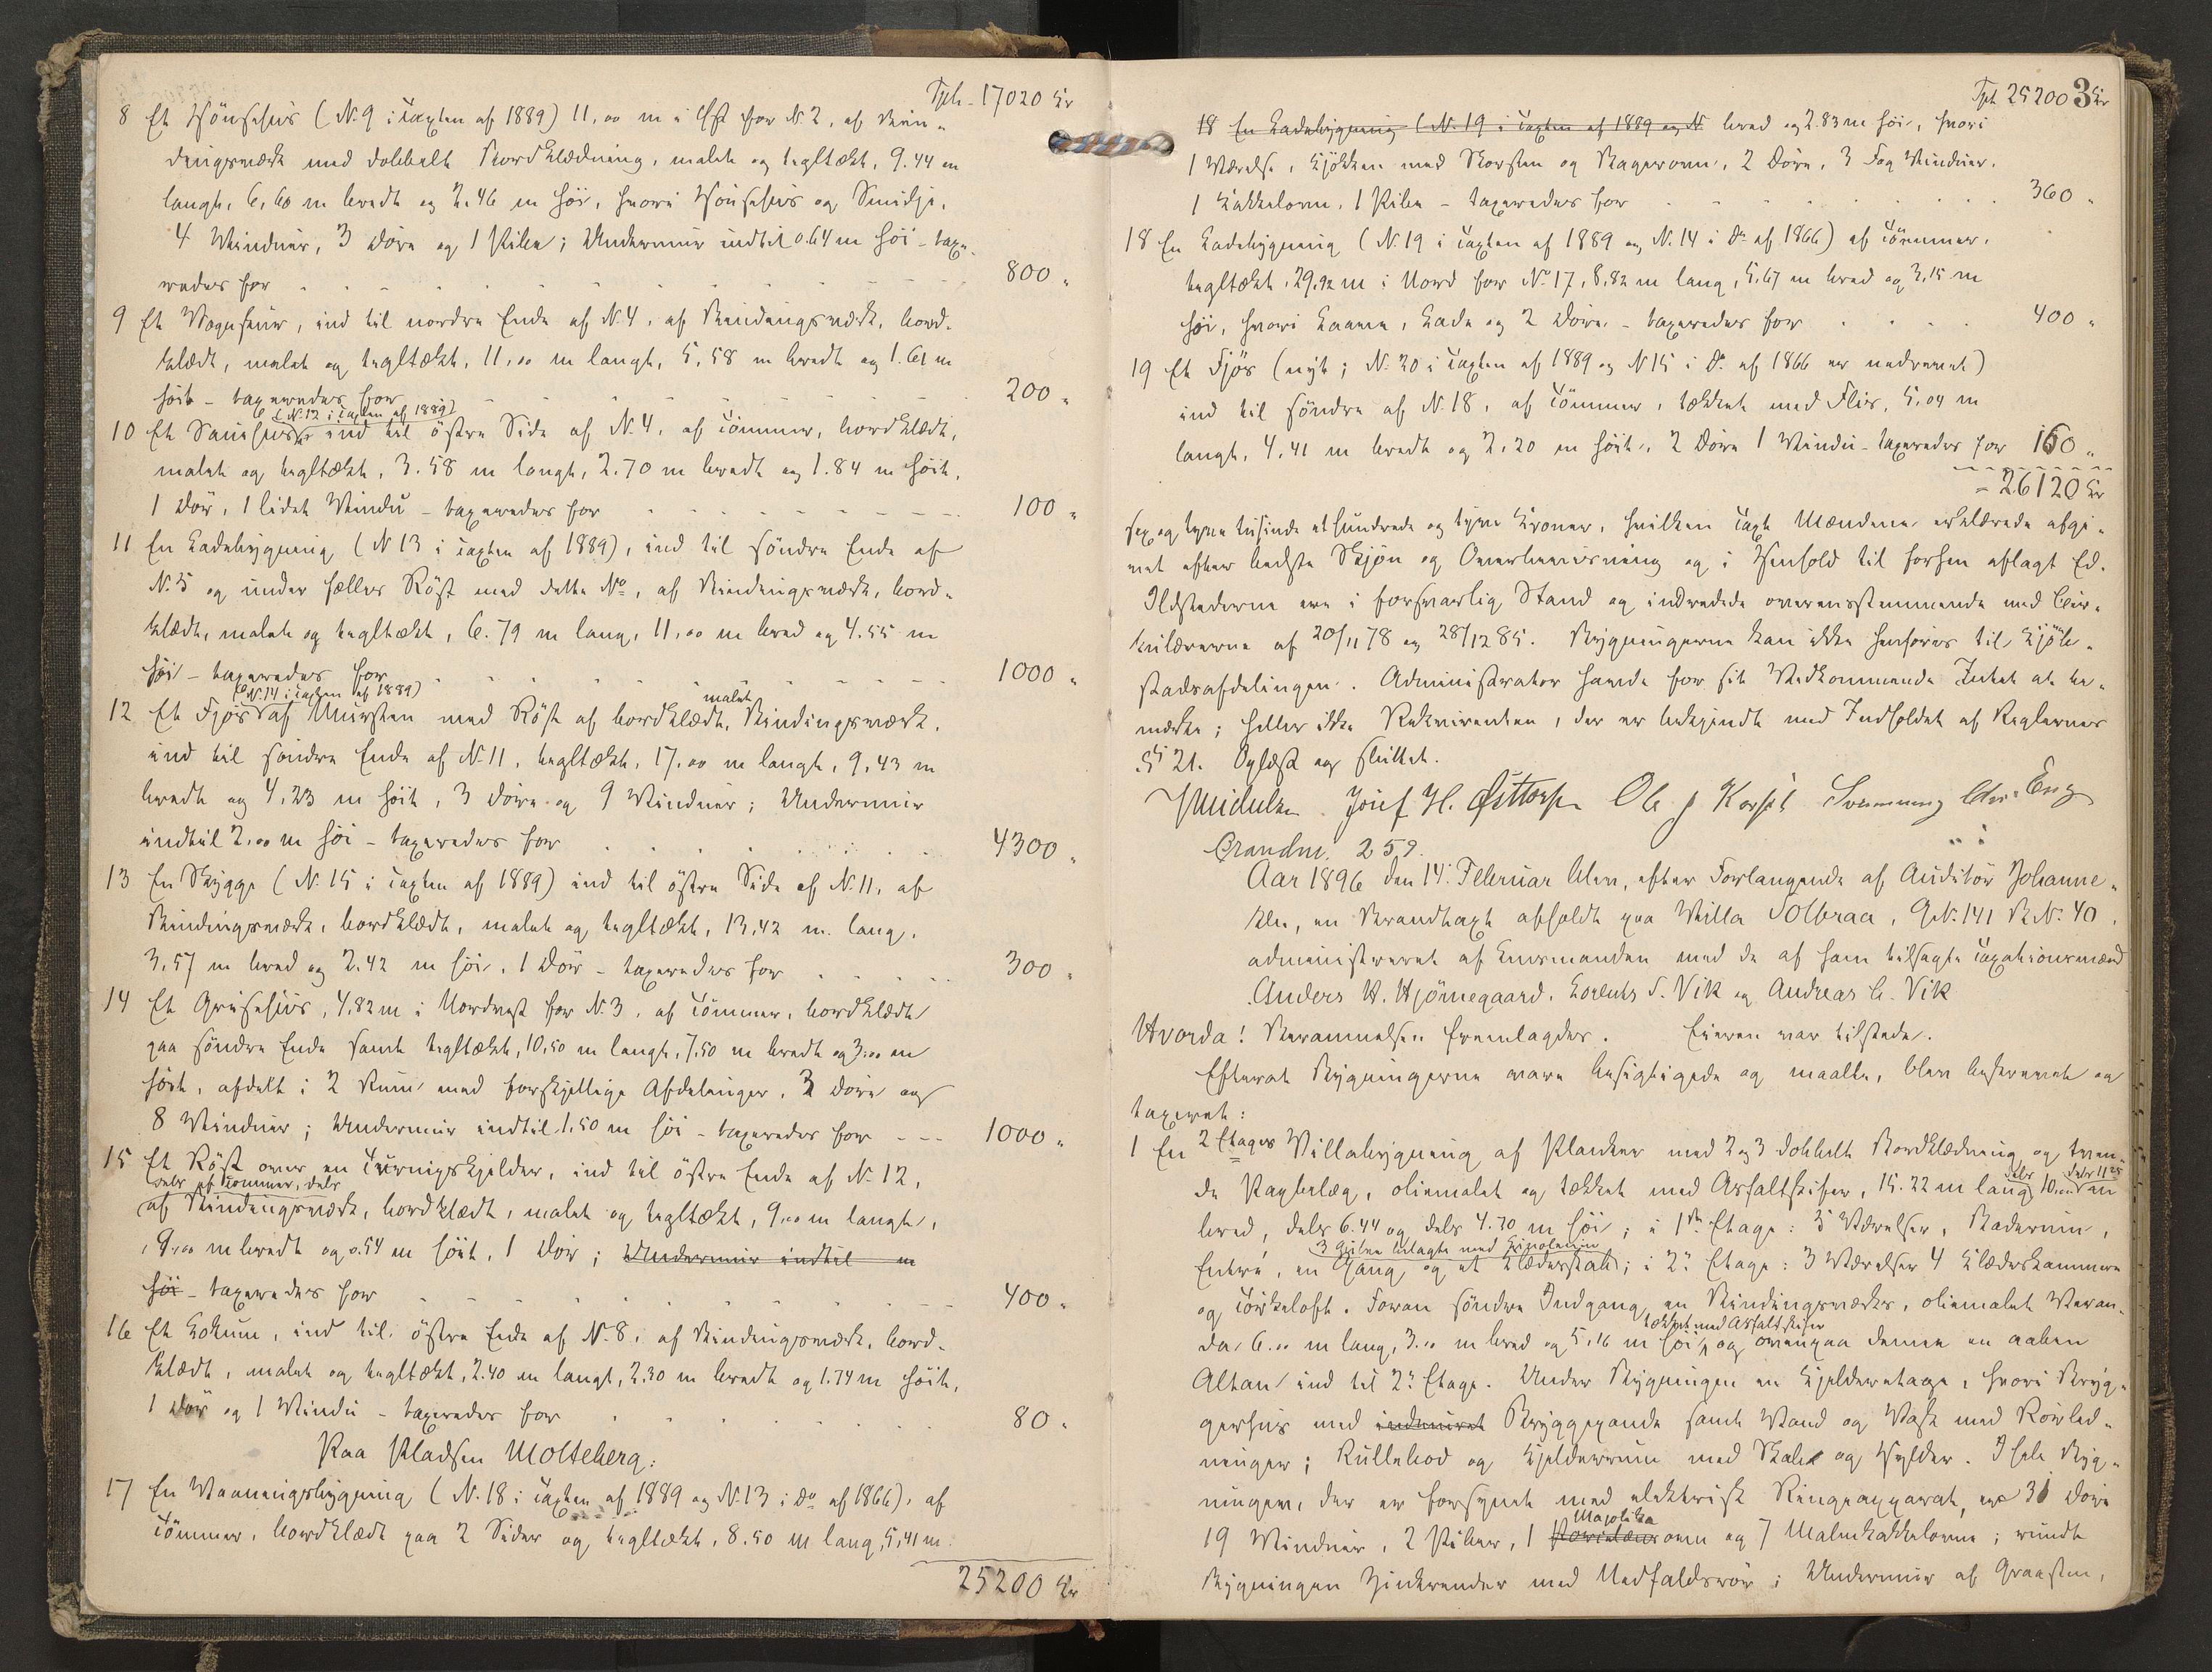 Tph. 17020 Kr
8 Et Hönsehus (N. 9 i Taxten af 1889) 11,00 m i Öst for N. 2, af Bin-
dingsværk med dobbelt Bordklædning, malet og tegltækt, 9.44 m
langt, 6,60 m bredt og 2.46 m höi, hvori Hönsehus og Smidje,
4 Vinduer, 3 Döre og 1 Pibe; Undermur indtil 0.64 m höi - taxe-
redes for 800 "
9 Et Vognskur, ind til nordre Ende af N. 4, af Bindingsværk, bord-
klædt, malet og tegltækt, 11,00 m langt, 5,58 m bredt og 1.61 m
höit - taxeredes for 200 "
(N. 12 i Taxten af 1889)
10 Et ind til östre Side af N. 4, af Tömmer, bordklædt,
malet og tegltækt, 3.58 m langt, 2.70 m bredt og 1.84 m höit,
1 Dör, 1 lidet Vindu - taxeredes for 100 "
11 En Ladebygning (N 13 i Taxten af 1889), ind til söndre Ende af
N. 5 og under fælles Röst med dette No, af Bindingsværk, bord-
klædt, malet og tegltækt, 6.79 m lang, 11,00 m bred og 4.55 m
höi - taxeredes for 1000 "
(N. 14 i Taxten af 1889) malet
12 Et Fjös af Mursten med Röst af bordklædt, Bindingsværk,
ind til söndre Ende af N. 11, tegltækt, 17,00 m langt, 9,43 m
bredt og 4,23 m höit, 3 Döre og 9 Vinduer; Undermur
indtil 2,00 m höi - taxeredes for 4300 "
13 En Skygge (N. 15 i Taxten af 1889) ind til östre Side af N. 11, af
Bindingsværk, bordklædt, malet og tegltækt, 13,42 m. lang,
3,57 m bred og 2.42 m höi, 1 Dör - taxeredes for 300 "
14 Et Grisehus, 4,82 m i Nordvest for N. 3, af Tömmer, bordklædt
paa söndre Ende samt tegltækt, 10,50 m langt, 7,50 m bredt og 3,00 m
höit, afdelt i 2 Rum med forskjellige Afdelinger, 3 Döre og
8 Vinduer; Undermur indtil 1,50 m höi - taxeredes for 1000 "
15 Et Röst over en Turnipskjelder, ind til östre Ende af N. 12,
dels af Tömmer, dels
af Bindingsværk, bordklædt, malet og tegltækt, 9,00 m langt,
9,00 m bredt og 0.54 m höit, 1 Dör; Undermur indtil m
höi - taxeredes for 400 "
16 Et Lokum, ind til östre Ende af N. 8, af Bindingsværk, bord-
klædt, malet og tegltækt, 2.40 m langt, 2,30 m bredt og 1.74 m höit,
1 Dör og 1 Vindu - taxeredes for 80 "
Paa Pladsen Molteberg:
17 En Vaaningsbygning (N. 18 i Taxten af 1889 og N. 13 i Do af 1866), af
Tömmer, bordklædt paa 2 Sider og tegltækt, 8.50 m lang, 5,41 m
25200 Kr
Tph 25200 Kr 3
18 En Ladebygning (N. 19 i Taxten af 1889 og N bred og 2.83 m höi, hvori
1 Værelse, Kjökken med Skorsten og Bagerovn, 2 Döre, 3 Fag Vinduer,
1 Kakkelovn, 1 Pibe - taxeredes for 360 "
18 En Ladebygning (N. 19 i Taxten af 1889 og N. 14 i Do af 1866) af Tömmer,
tegltækt, 29,92 m i Nord for No 17, 8,82 m lang, 5,67 m bred og 3,15 m
höi, hvori Laave, Lade og 2 Döre - taxeredes for 400 "
19 Et Fjös (nyt; N. 20 i Taxten af 1889 og N 15 i Do af 1866 er nedrevet)
ind til söndre af N. 18, af Tömmer, tækket med Flis, 5,04 m
langt, 4,41 m bredt og 2,20 m höit, 2 Döre 1 Vindu - taxeredes for 160 "
= 26120 Kr
sex og tyve tusinde et hundrede og tyve Kroner, hvilken Taxt Mændene erklærede afgi-
vet efter bedste Skjön og Overbevisning og i Henhold til forhen aflagt Ed.
Ildstederne ere i forsvarlig Stand og indredede overensstemmende med Cir-
kulærerne af 20/11 78 og 28/12 85. Bygningerne kan ikke henföres til Kjöb-
stadsafdelingen. Administrator havde for sit Vedkommende Intet at be-
mærke; heller ikke Rekvirenten, der er bekjendt med Indholdet af Reglernes
§ 21. Oplæst og sluttet.
Josef H. Østtorp Ole J Svenning Chr. Eng
Brandnr. 259.
Aar 1896 den 14. Februar blev, efter Forlangende af Auditör Johanne-
sen, en Brandtaxt afholdt paa Villa Solbraa, G.N. 141 B.N. 40,
administreret af Lensmanden med de af ham tilsagte Taxationsmænd
Anders H. Hjörnegaard, Lorents S. Vik og Andreas C. Vik
Hvorda! Berammelsen fremlagdes. Eieren var tilstede.
Efterat Bygningerne vare besigtigede og maalte, blev beskrevet og
taxeret:
1 En 2 Etages Villabygning af Planker med 2 og 3 dobbelt Bordklædning og tven-
dels dels 11,25
de Papbelæg, oliemalet og tækket med Asfaltskifer, 15.22 m lang 10,00 m
bred, dels 6.44 og dels 4.70 m höi; i 1ste Etage: 5 Værelser, Baderum,
3 Gulve belagte med Linoleum
Entré, en Gang og et Klæderskab; i 2. Etage: 3 Værelser 4 Klæderkammere
og Törkeloft. Foran söndre Indgang en Bindingsværks, oliemalet Veran-
tækket med Asfaltskifer
da 6.00 m lang, 3.00 m bred og 5,16 m höi, og ovenpaa denne en aaben
Altan ind til 2. Etage. Under Bygningen en Kjelderetage, hvori Bryg-
gerhus med indmuret Bryggepande samt Vand og Vask med Rörled-
ninger; Rullebod og Kjelderrum med Stald og Hylder. I hele Byg-
ningen, der er forsynet med elektrisk Ringeapparat, er 31 Döre
Majolika
19 Vinduer, 2 Piber, 1 Porcelæns ovn og 7 Malmkakkelovne; rundt
Bygningen Zinkrender med Nedfaldsrör; Undermur af Graasten,